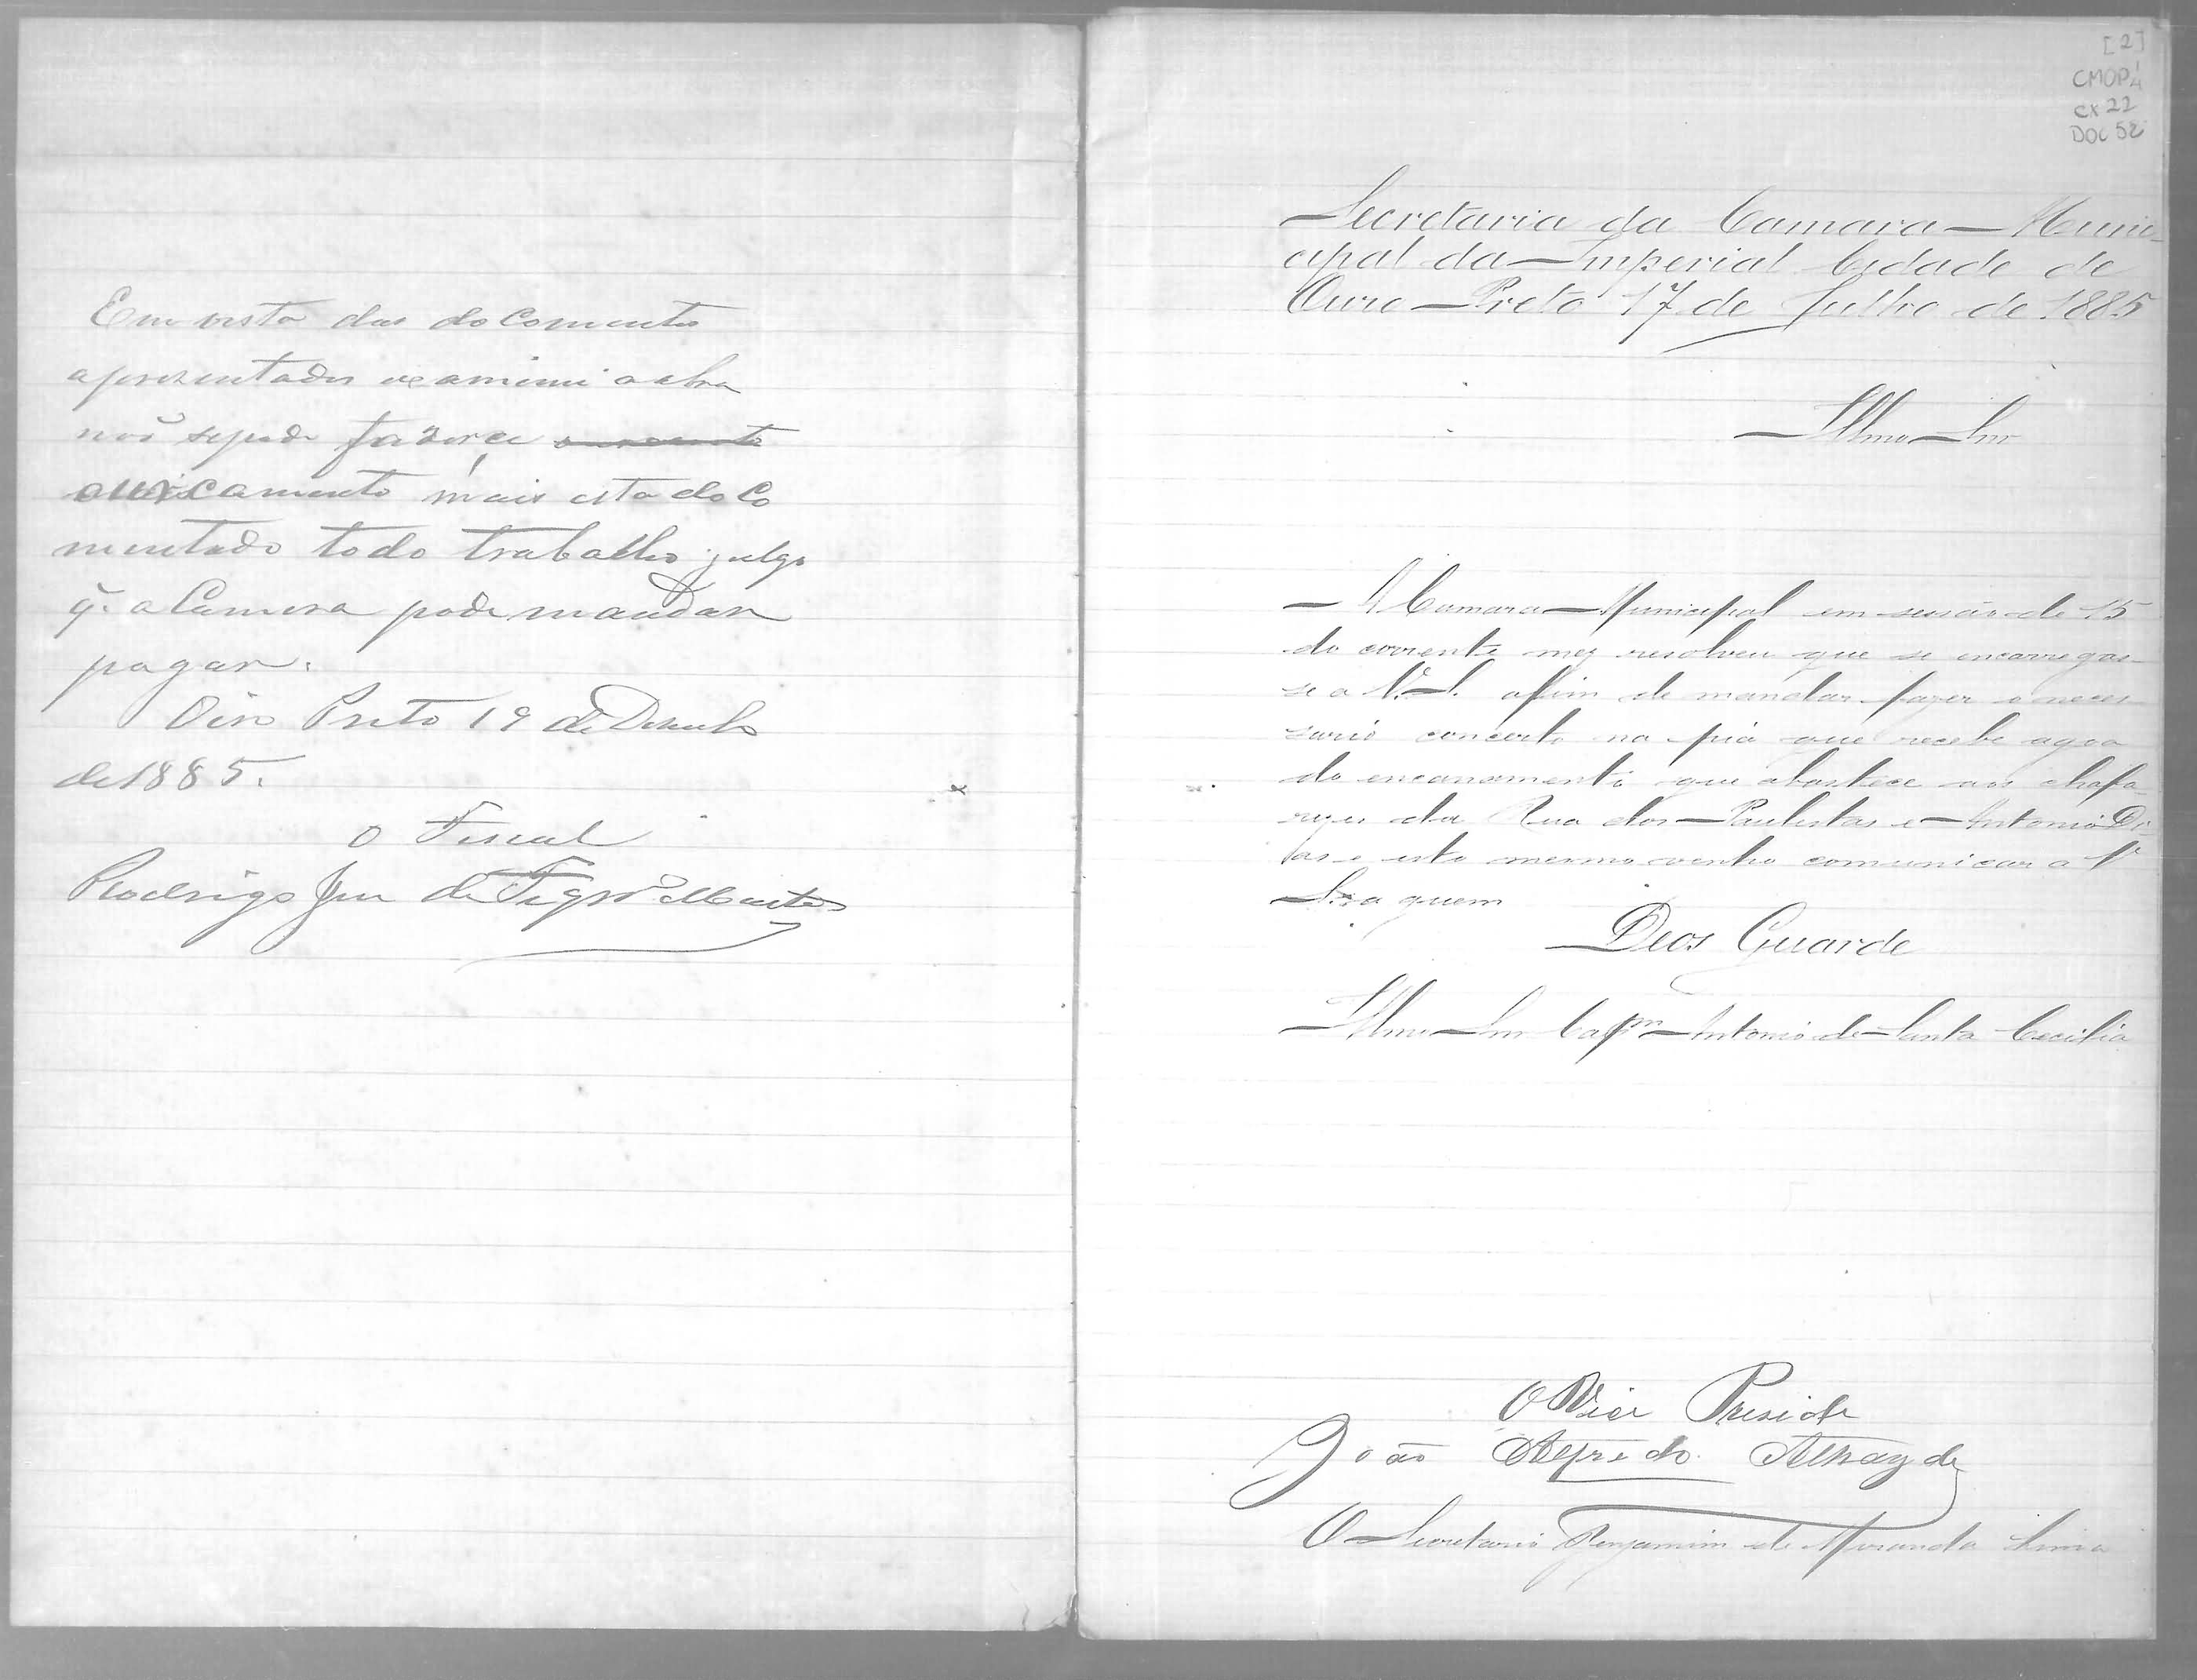 Em vista dos docomentos
apresentados ixaminei a obra
não se pode fazer ce
ouricamento mais esta doco
mentado todo trabalho julgo
q̃. a Camera pode mandar
pagar.
Oiro Preto 19 de Dezembro
de 1885.
O Fiscal
Rodrigo de Figrdo
[2]
CMOP
CX 22
DOC 52
Secretaria da Camara Muni-
cipal da Imperial Cidade de
Ouro Preto 17 de Julho de 1885
Illmo Snr
A Camara Municipal em sessão de 15
do corrente mez resolveu que se encarregas-
se a V. S. afim de mandar fazer o neces-
sario concerto na pia que recebe agoa
do encanamento que abastece aos chafa-
rizes da Rua dos Paulistas e Antonio Di-
as e isto mesmo venho comunicar a V.
S. a quem
Deos Guarde
Illmo Snr Capm Antonio de Santa Cecilia
O Vice Preside
João Alfredo Athayde
O Secretario Benjamim de Miranda Lima